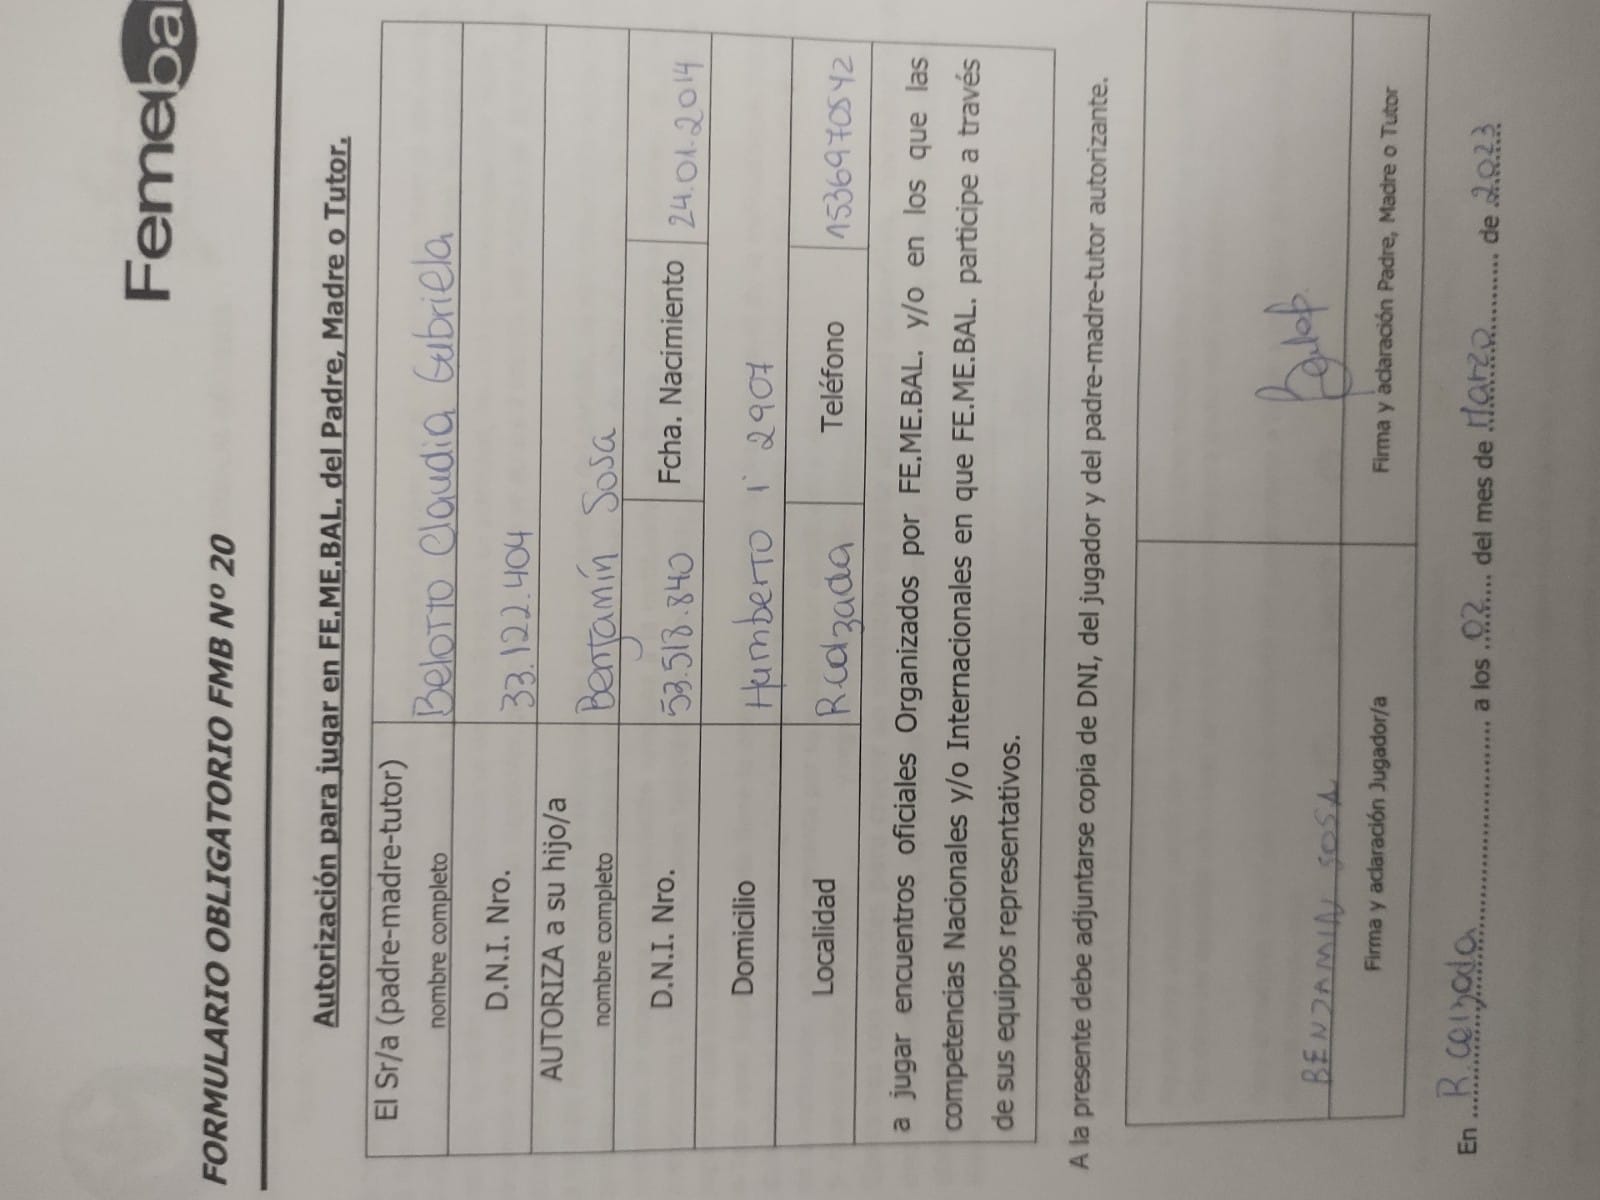 Femebal
FORMULARIO OBLIGATORIO FMB Nº 20
Autorización para jugar en FE.ME.BAL. del Padre, Madre o Tutor.
El Sr/a (padre-madre-tutor)
nombre completo
Belotto Claudia Gabriela
D.N.I. Nro.
33.122.404
AUTORIZA a su hijo/a
nombre completo
Benjamín Sosa
D.N.I. Nro.
53.518.840
Fcha. Nacimiento
24.01.2014
Domicilio
Humberto 1° 2907
Localidad
R.calzada
Teléfono
1536970542
a jugar encuentros oficiales Organizados por FE.ME.BAL. y/o en los que las
competencias Nacionales y/o Internacionales en que FE.ME.BAL. participe a través
de sus equipos representativos.
A la presente debe adjuntarse copia de DNI, del jugador y del padre-madre-tutor autorizante.
BENJAMIN SOSA
Firma y aclaración Jugador/a
Firma y aclaración Padre, Madre o Tutor
En R.calzada a los 02 del mes de Marzo de 2023